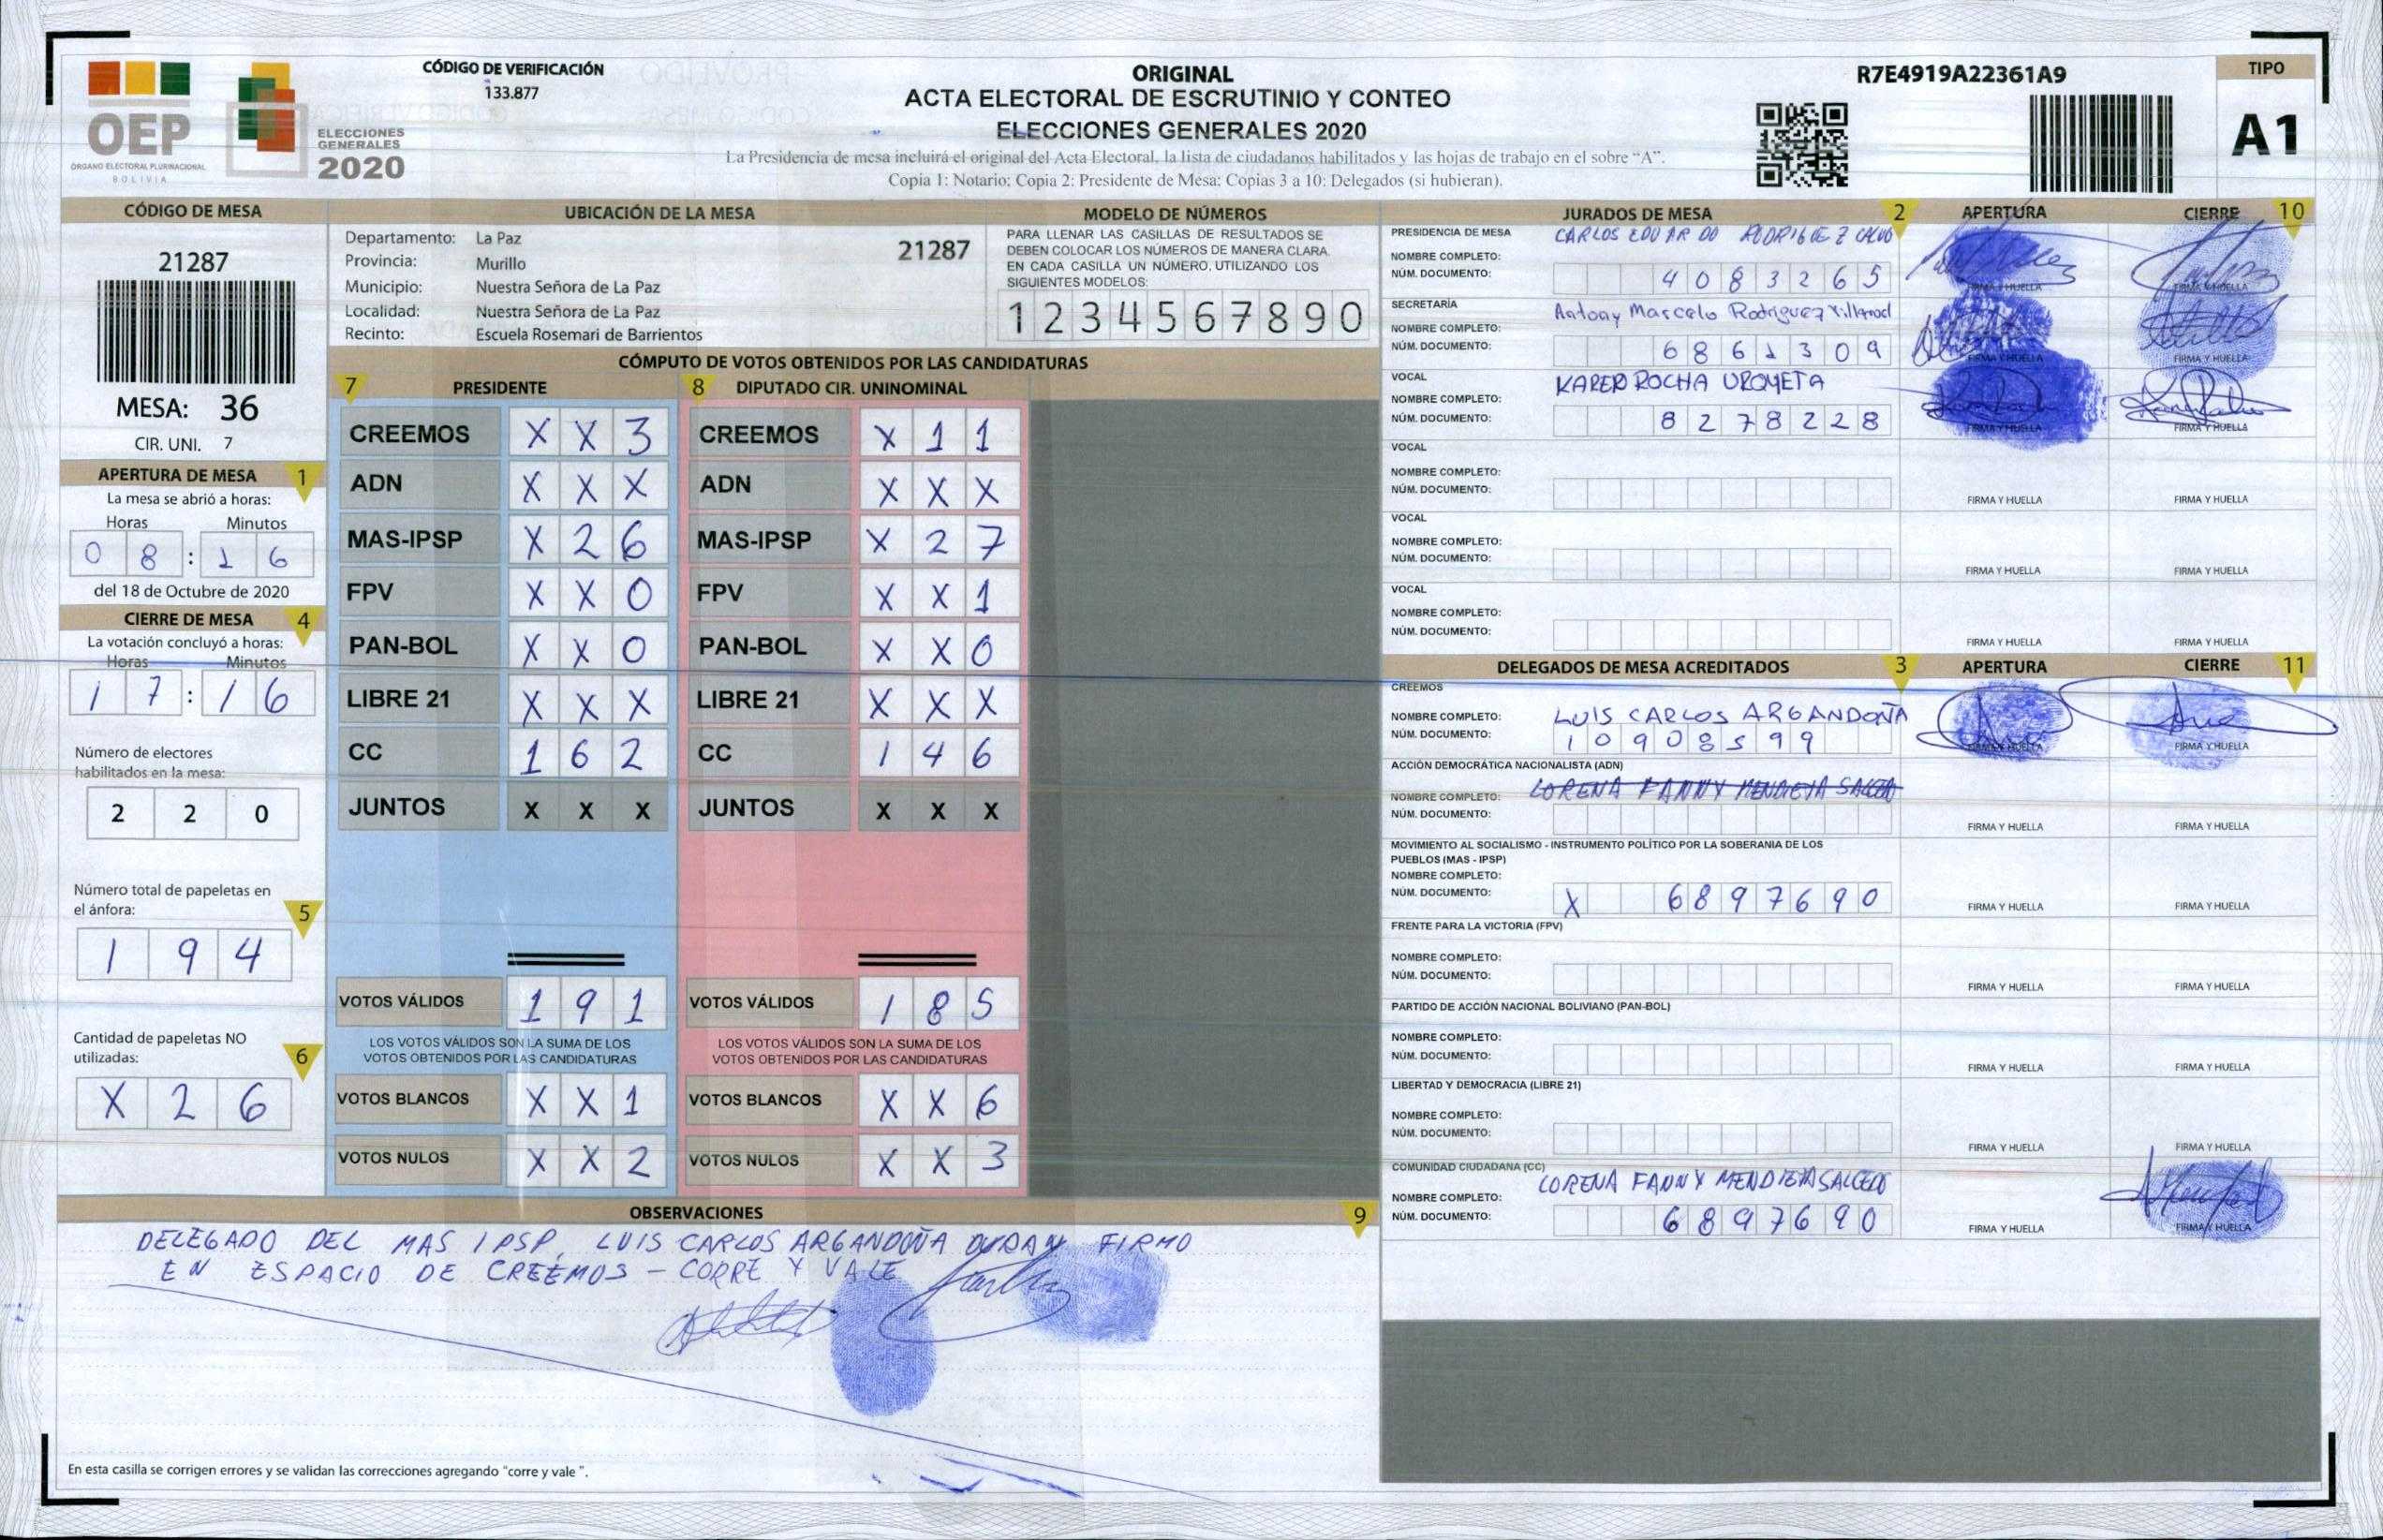 OEP
ÓRGANO ELECTORAL PLURINACIONAL
BOLIVIA
ELECCIONES
GENERALES
2020
CÓDIGO DE VERIFICACIÓN
133.877
ORIGINAL
ACTA ELECTORAL DE ESCRUTINIO Y CONTEO
ELECCIONES GENERALES 2020
La Presidencia de mesa incluirá el original del Acta Electoral, la lista de ciudadanos habilitados y las hojas de trabajo en el sobre “A”.
Copia 1: Notario; Copia 2: Presidente de Mesa; Copias 3 a 10: Delegados (si hubieran).
R7E4919A22361A9
TIPO
A1
CÓDIGO DE MESA
21287
MESA: 36
CIR. UNI. 7
APERTURA DE MESA 1
La mesa se abrió a horas:
Horas Minutos
08:16
del 18 de Octubre de 2020
CIERRE DE MESA 4
La votación concluyó a horas:
Horas Minutos
17:16
Número de electores
habilitados en la mesa:
2 2 0
Número total de papeletas en
el ánfora: 5
1 9 4
Cantidad de papeletas NO
utilizadas: 6
X 2 6
UBICACIÓN DE LA MESA
Departamento: La Paz 21287
Provincia: Murillo
Municipio: Nuestra Señora de La Paz
Localidad: Nuestra Señora de La Paz
Recinto: Escuela Rosemari de Barrientos
MODELO DE NÚMEROS
PARA LLENAR LAS CASILLAS DE RESULTADOS SE
DEBEN COLOCAR LOS NÚMEROS DE MANERA CLARA.
EN CADA CASILLA UN NÚMERO, UTILIZANDO LOS
SIGUIENTES MODELOS:
1 2 3 4 5 6 7 8 9 0
CÓMPUTO DE VOTOS OBTENIDOS POR LAS CANDIDATURAS
7 PRESIDENTE 8 DIPUTADO CIR. UNINOMINAL
CREEMOS X X 3 CREEMOS X 1 1
ADN X X X ADN X X X
MAS-IPSP X 2 6 MAS-IPSP X 2 7
FPV X X 0 FPV X X 1
PAN-BOL X X 0 PAN-BOL X X 0
LIBRE 21 X X X LIBRE 21 X X X
CC 1 6 2 CC 1 4 6
JUNTOS X X X JUNTOS X X X
VOTOS VÁLIDOS 1 9 1 VOTOS VÁLIDOS 1 8 5
LOS VOTOS VÁLIDOS SON LA SUMA DE LOS LOS VOTOS VÁLIDOS SON LA SUMA DE LOS
VOTOS OBTENIDOS POR LAS CANDIDATURAS VOTOS OBTENIDOS POR LAS CANDIDATURAS
VOTOS BLANCOS X X 1 VOTOS BLANCOS X X 6
VOTOS NULOS X X 2 VOTOS NULOS X X 3
JURADOS DE MESA 2 APERTURA CIERRE 10
PRESIDENCIA DE MESA CARLOS EDUARDO RODRIGUEZ CALVO
NOMBRE COMPLETO:
NÚM. DOCUMENTO: 4 0 8 3 2 6 5 FIRMA Y HUELLA FIRMA Y HUELLA
SECRETARÍA Antony Marcelo Rodriguez
NOMBRE COMPLETO:
NÚM. DOCUMENTO: 6 8 6 1 3 0 9 FIRMA Y HUELLA FIRMA Y HUELLA
VOCAL KAREN ROCHA URQUETA
NOMBRE COMPLETO:
NÚM. DOCUMENTO: 8 2 7 8 2 2 8 FIRMA Y HUELLA FIRMA Y HUELLA
VOCAL
NOMBRE COMPLETO:
NÚM. DOCUMENTO: FIRMA Y HUELLA FIRMA Y HUELLA
VOCAL
NOMBRE COMPLETO:
NÚM. DOCUMENTO: FIRMA Y HUELLA FIRMA Y HUELLA
VOCAL
NOMBRE COMPLETO:
NÚM. DOCUMENTO: FIRMA Y HUELLA FIRMA Y HUELLA
DELEGADOS DE MESA ACREDITADOS 3 APERTURA CIERRE 11
CREEMOS
NOMBRE COMPLETO: LUIS CARLOS ARGANDOÑA
NÚM. DOCUMENTO: 1 0 9 0 8 5 9 9 FIRMA Y HUELLA FIRMA Y HUELLA
ACCIÓN DEMOCRÁTICA NACIONALISTA (ADN)
NOMBRE COMPLETO: LORENA FANNY MENDIETA SALCEDO
NÚM. DOCUMENTO: FIRMA Y HUELLA FIRMA Y HUELLA
MOVIMIENTO AL SOCIALISMO - INSTRUMENTO POLÍTICO POR LA SOBERANIA DE LOS
PUEBLOS (MAS - IPSP)
NOMBRE COMPLETO:
NÚM. DOCUMENTO: X 6 8 9 7 6 9 0 FIRMA Y HUELLA FIRMA Y HUELLA
FRENTE PARA LA VICTORIA (FPV)
NOMBRE COMPLETO:
NÚM. DOCUMENTO: FIRMA Y HUELLA FIRMA Y HUELLA
PARTIDO DE ACCIÓN NACIONAL BOLIVIANO (PAN-BOL)
NOMBRE COMPLETO:
NÚM. DOCUMENTO: FIRMA Y HUELLA FIRMA Y HUELLA
LIBERTAD Y DEMOCRACIA (LIBRE 21)
NOMBRE COMPLETO:
NÚM. DOCUMENTO: FIRMA Y HUELLA FIRMA Y HUELLA
COMUNIDAD CIUDADANA (CC)
NOMBRE COMPLETO: LORENA FANNY MENDIETA SALCEDO
NÚM. DOCUMENTO: 6 8 9 7 6 9 0 FIRMA Y HUELLA FIRMA Y HUELLA
OBSERVACIONES 9
DELEGADO DEL MAS IPSP, LUIS CARLOS ARGANDOÑA DURAN FIRMO
EN ESPACIO DE CREEMOS – CORRE Y VALE
En esta casilla se corrigen errores y se validan las correcciones agregando “corre y vale ”.